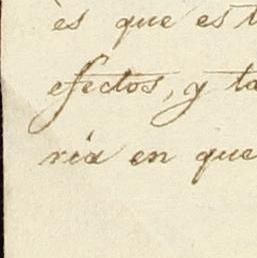 ès que est
efectos, y ta
ria en que